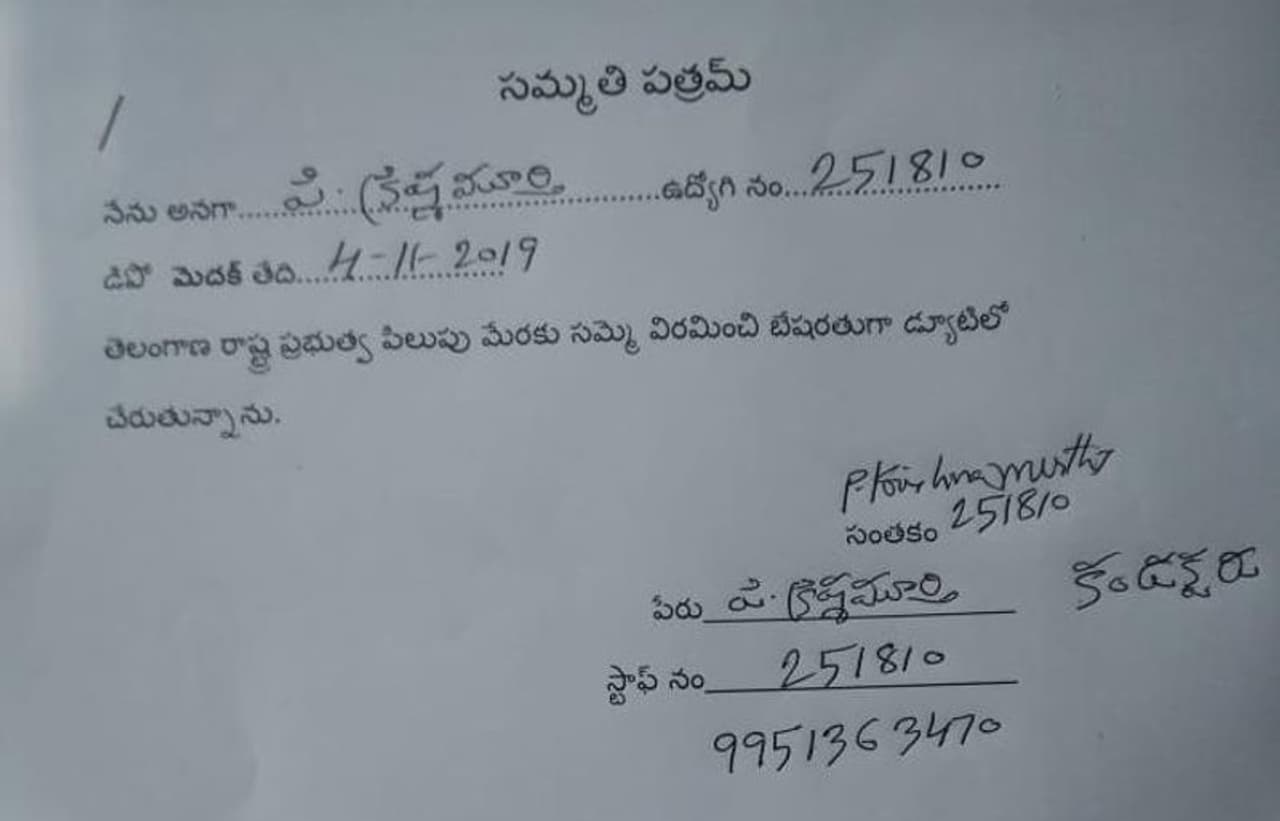 సమ్మతి పత్రమ్
/
నేను అనగా.....పి. క్రిష్ణమూర్తి..........ఉద్యోగి నం...251810
డిపో మెదక్ తేది....4-11-2019
తెలంగాణ రాష్ట్ర ప్రభుత్వ పిలుపు మేరకు సమ్మె విరమించి బేషరతుగా డ్యూటిలో
చేరుతున్నాను.
P. Krishnamurthy
సంతకం 251810
పేరు పి. క్రిష్ణమూర్తి కండక్టరు
స్టాఫ్ నం 251810
9951363470